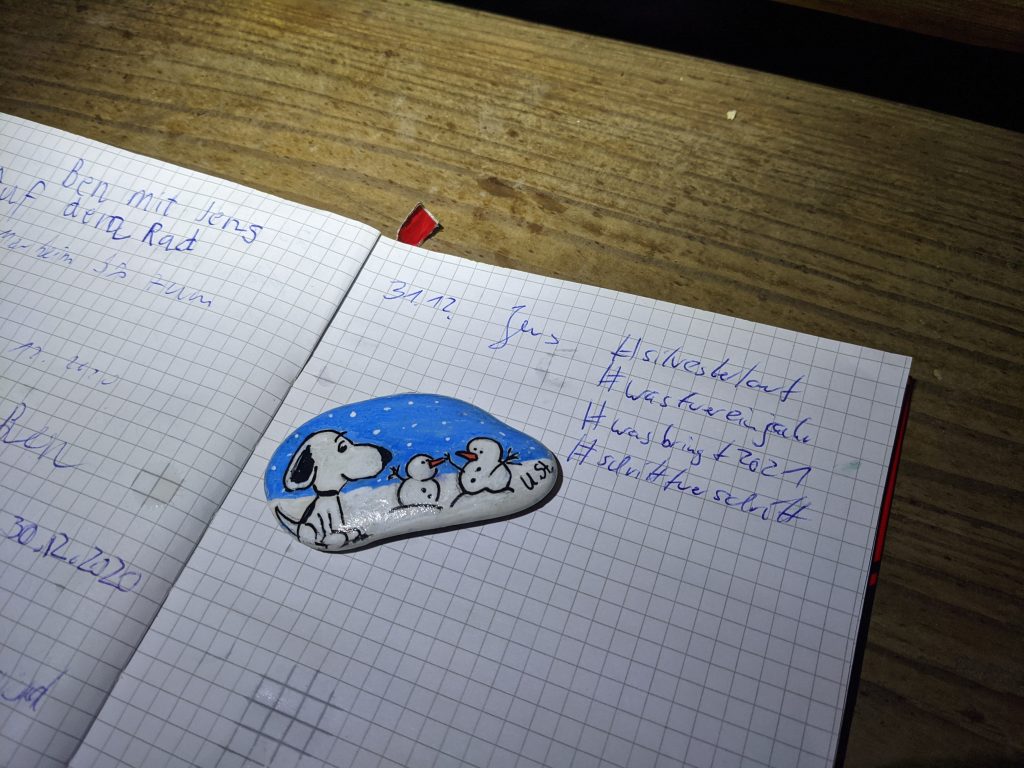 Ben mit Jens
auf dem Rad
zum
Ben
30.12.2020
31.12. Jens #silvesterlauf
#wasfüreinjahr
#wasbringt2021
#schrittfürschritt
U.St.